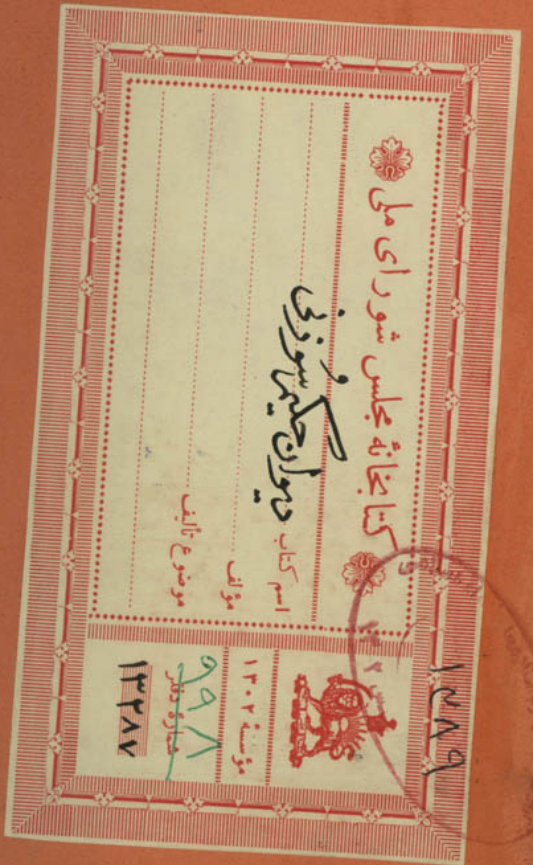 کتابخانهٔ مجلس شورای ملی
اسم کتاب دیوان حکیم سوزنی
مؤلف
موضوع تألیف
مؤسسهٔ ۱۳۰۲
شمارهٔ دفتر
۹۹۸
۱۳۲۸۷
۱۳۸۹